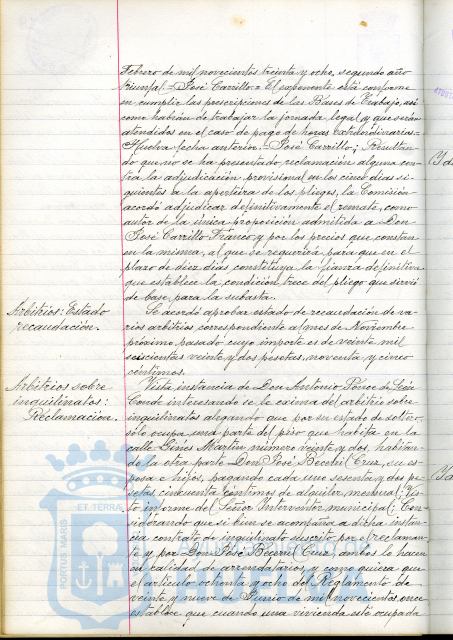 Febrero de mil novecientos treinta y ocho, segundo año
triunfal.- José Carrillo.= El exponente está conforme
en cumplir las prescripciones de las Bases de Trabajo, asi
como habrán de trabajar la jornada legal y que serán
atendidos en el caso de pago de horas extraordinarias.-
Huelva fecha anterior.- José Carrillo; Resultan-
do que no se ha presentado reclamación alguna con-
tra la adjudicación provisional en los cinco dias si-
guientes a la apertura de los pliegos, la Comisión
acordó adjudicar definitivamente el remate, como
autor de la única proposición admitida a Don
José Carrillo Franco y por los precios que constan
en la misma, al que se requerirá para que en el
plazo de diez dias constituya la fianza definitiva
que establece la condición trece del pliego que sirvió
de base para la subasta.
Arbitrios: Estado
recaudación.
Se acordó aprobar estado de recaudación de va-
rios arbitrios correspondiente al mes de Noviembre
próximo pasado cuyo importe es de veinte mil
seiscientos veinte y dos pesetas, noventa y cinco
céntimos.
Arbitrios sobre
inquilinatos:
Reclamación.
Vista instancia de Don Antonio Ponce de León
Conde interesando se le exima del arbitrio sobre
inquilinatos alegando que por su estado de soltero,
sólo ocupa una parte del piso que habita en la
calle Ginés Martin número veinte y dos, habitan-
do la otra parte Don José Becerril Cruz, su es-
posa e hijos, pagando cada uno sesenta y dos pe-
setas cincuenta céntimos de alquiler mensual; Vis-
to informe del Señor Interventor municipal; Con-
siderando que si bien se acompaña a dicha instan-
cia contrato de inquilinato suscrito por el reclaman-
te y por Don José Becerril Cruz ambos lo hacen
en calidad de arrendatarios, y como quiera que
el artículo ochenta y ocho del Reglamento de
veinte y nueve de Junio de mil novecientos once
establece que cuando una vivienda esté ocupada
PORTUS MARIS
ET TERRAE